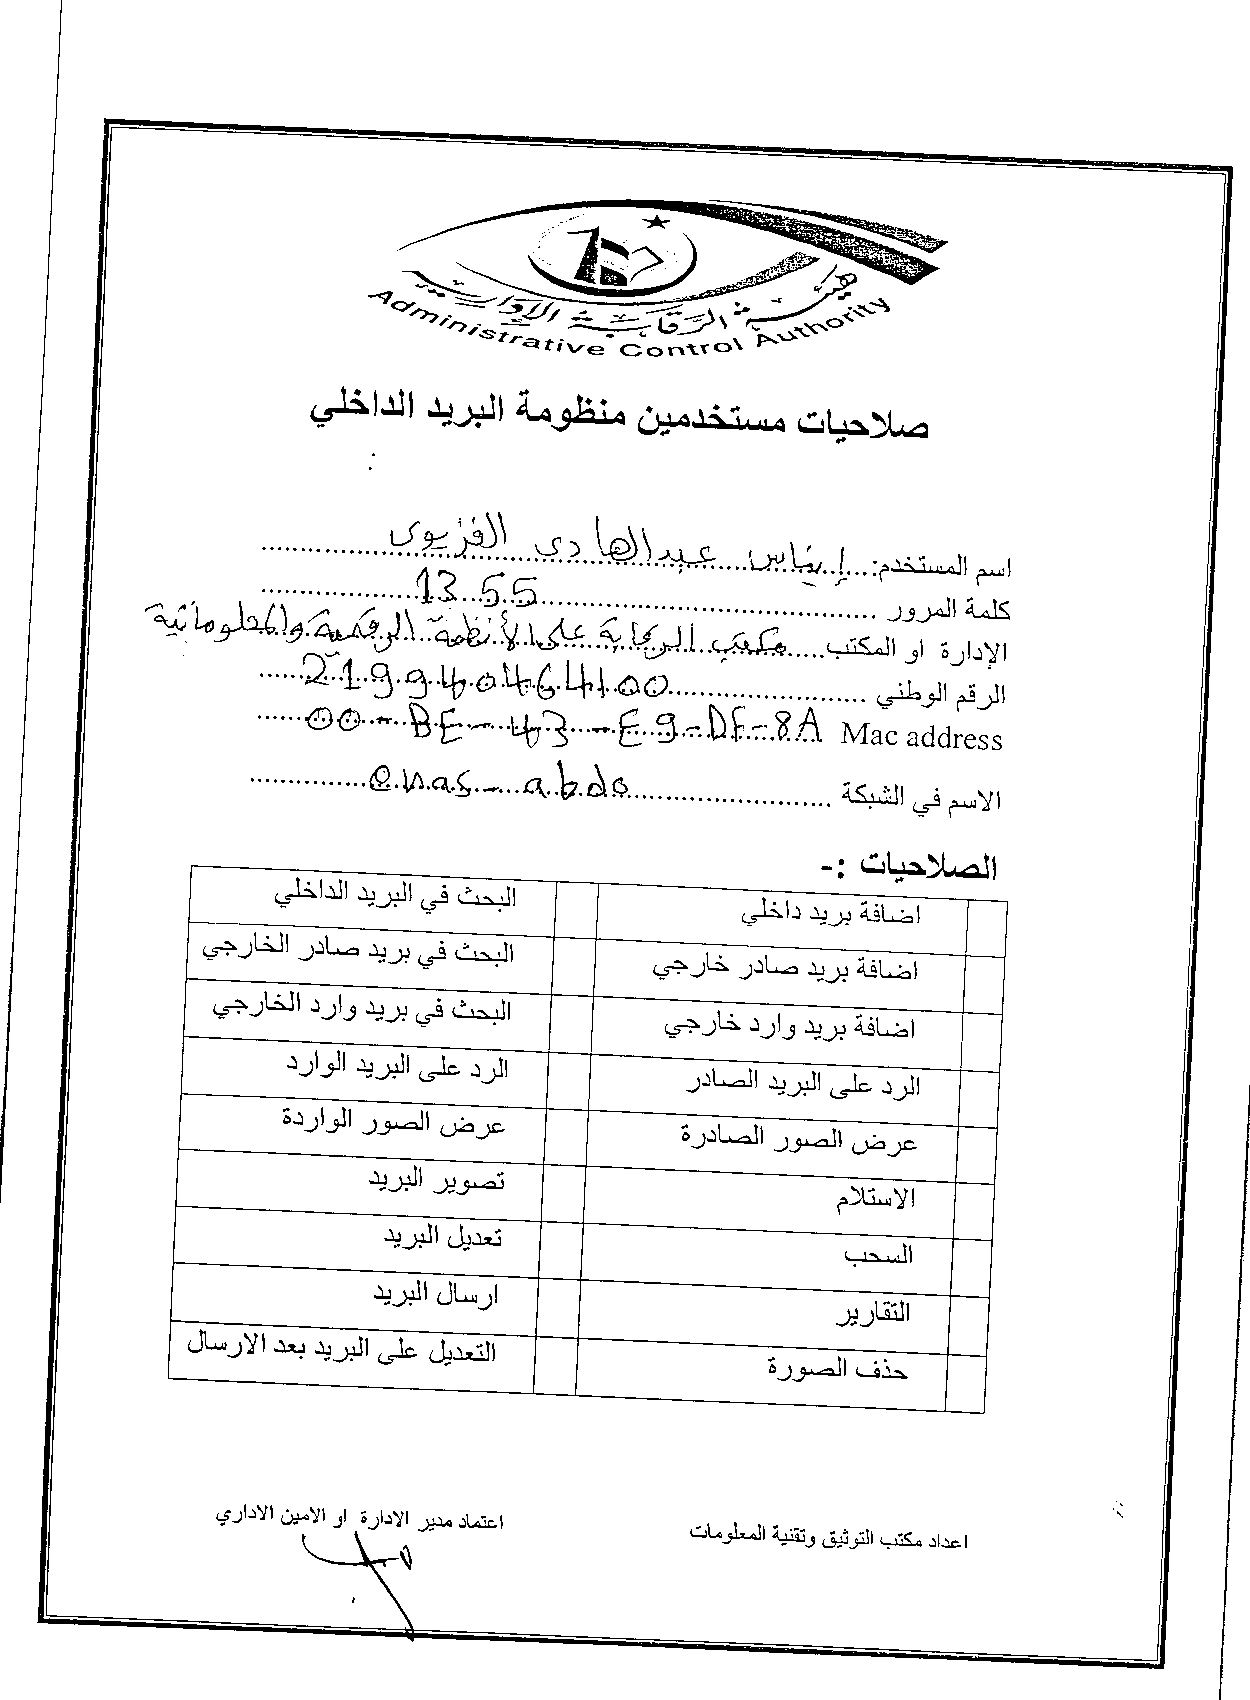 هيئة الرقابة الإدارية
Administrative Control Authority
صلاحيات مستخدمين منظومة البريد الداخلي
:
اسم المستخدم: إيناس عبدالهادي الفزيوى
كلمة المرور 1355
الإدارة او المكتب مكتب الرقابة على الأنظمة الرقمية والمعلوماتية
الرقم الوطني 219940464100
Mac address 00-BE-43-E9-DF-8A
الاسم في الشبكة enas-abdo
الصلاحيات :-
اضافة بريد داخلي البحث في البريد الداخلي
اضافة بريد صادر خارجي البحث في بريد صادر الخارجي
اضافة بريد وارد خارجي البحث في بريد وارد الخارجي
الرد على البريد الصادر الرد على البريد الوارد
عرض الصور الصادرة عرض الصور الواردة
الاستلام تصوير البريد
السحب تعديل البريد
التقارير ارسال البريد
حذف الصورة التعديل على البريد بعد الارسال
اعداد مكتب التوثيق وتقنية المعلومات اعتماد مدير الادارة او الامين الاداري